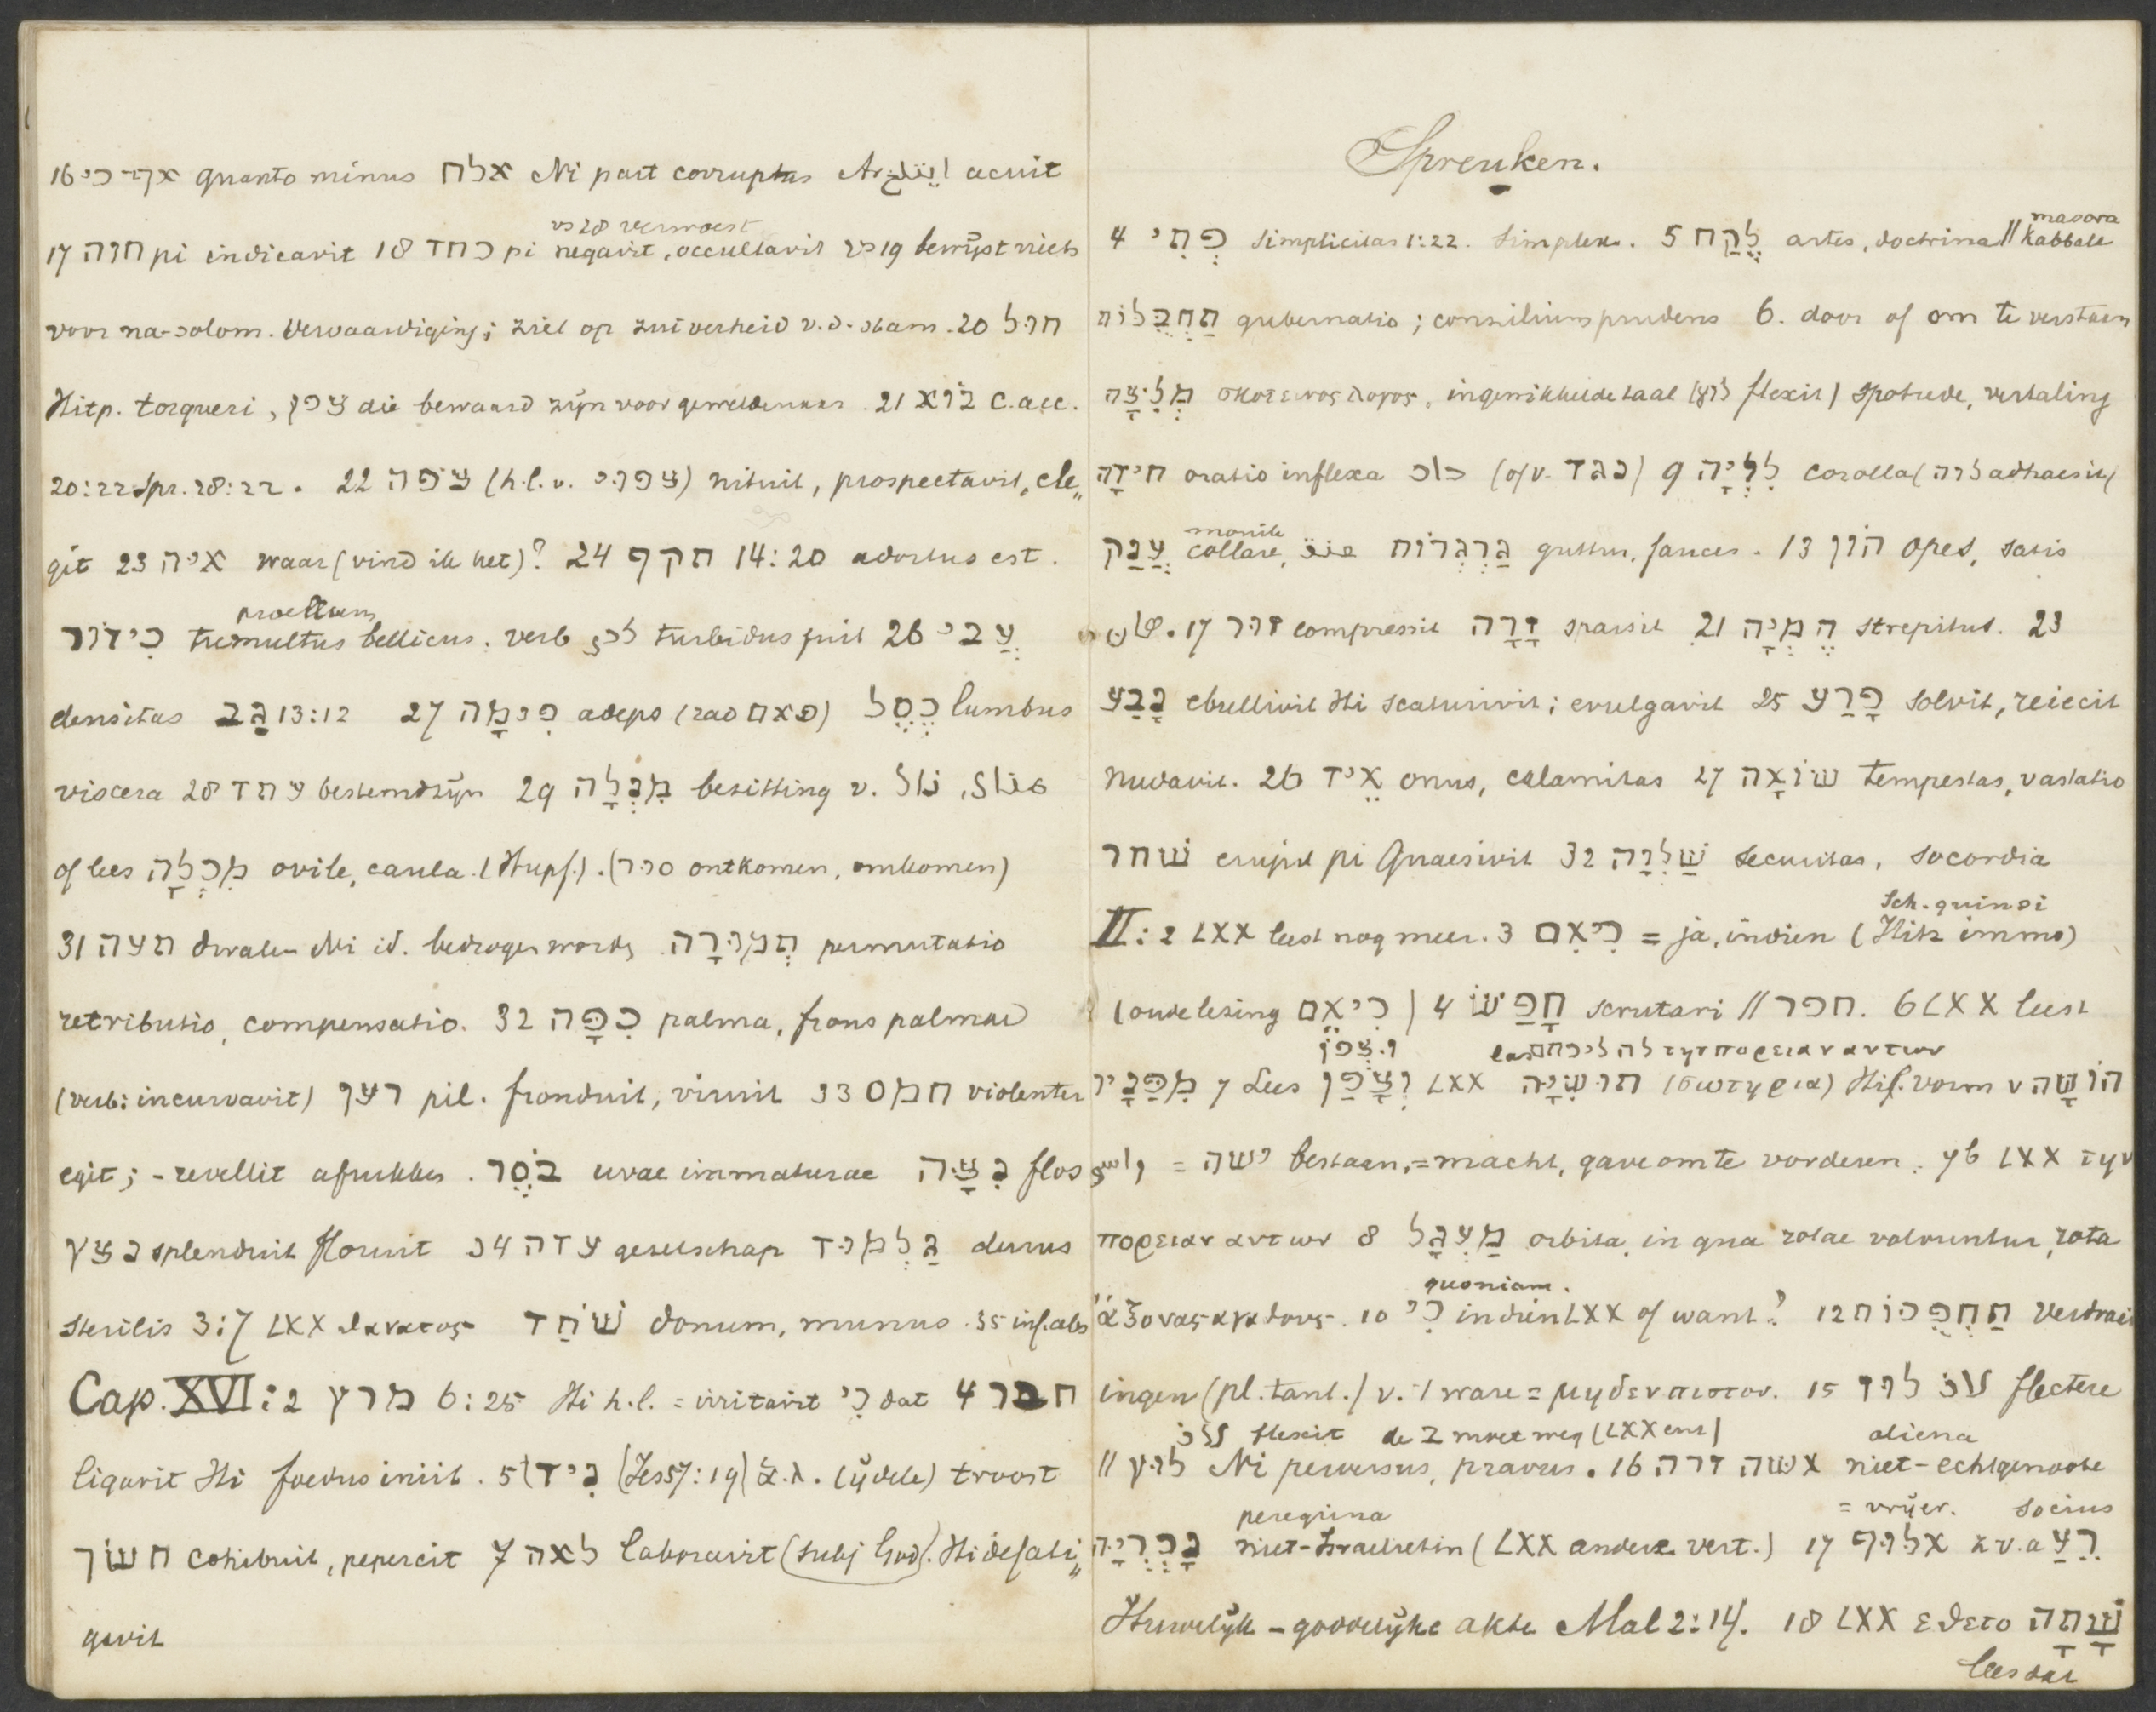 16 אף־כי quanto minus אלח Ni part corruptus Ar. acuit
vs 28 verwoest
17 חוה pi indicavit 18 כחד pi negavit, occultavit vs 19 bewijst niets
voor na-salom. vervaardiging; ziet op zuiverheid v.d. stam. 20 חול
Hitp. torqueri, צפן die bewaard zijn voor geweldenaar. 21 בוא c. acc.
20:22 Spr. 28:22. 22 צפה (h.l. v. צפוי) nituit, prospectavit, ele„
git 23 איה waar (vind ik het)? 24 תקף 14:20 adortus est.
proelium
כִידוֹר tumultus bellicus. verb turbidus fuit 26 עֲבִי
densitas גַּב 13:12 27 פִּימָה adeps (פאם) כֶּסֶל lumbus
viscera 28 עתד bestemd zijn 29 מִנְלָה bezitting v.
of lees מִכְלָה ovile, caula. (Hupf.). (סור ontkomen, omkomen)
31 תעה dwalen Ni id. bedrogen worden תְּמוּרָה permutatio
retributio, compensatio. 32 כִּפָּה palma, frons palmae
(verb: incurvavit) רען pil. fronduit, viruit 33 חמס violenter
egit; - revellit afrukken. בֹּסֶר uvae immaturae נִצָּה flos
נצץ splenduit floruit 34 עדה geselschap גַּלְמוּד durus
sterilis 3:7 LXX θανατος שֹׁחַד donum, munus. 35 inf. abs
Cap. XVI: 2 מרץ 6:25 Hi h.l. = irritavit כִּי dat 4 חבר
ligavit Hi foedus iniit. 5 נִיד (Jes 57:19) (ijdele) troost
חשׂך cohibuit, pepercit 7 לאה laboravit (subj God). Hi defati„
gavit
Spreuken.
masora
4 פְּתִי simplicitas 1:22. simplex. 5 לֶקַח artes, doctrina || Kabbala
תַּחְבֻּלוֹת gubernatio; consilium prudens 6. door of om te verstaan
מְלִיצָה σκοτεινος λογος, ingewikkelde taal (לוץ flexit) spotrede, vertaling
חִידָה oratio inflexa (of v. נגד) 9 לִוְיָה corolla (לוה adhaesit)
monile
עֲנַק collare, גַּרְגְּרוֹת guttur, fauces. 13 הוֹן opes, satis
17 זור compressit זָרָה sparsit 21 הֶמְיָה strepitus. 23
נָבַע ebullivit Hi scaturivit; evulgavit 25 פָּרַע solvit, reiecit
nudavit. 26 אֵיד onus, calamitas 27 שׁוֹאָה tempestas, vastatio
שׁחר erupit pi Quaesivit 32 שַׁלְוָה securitas, socordia
Sch. quin si
II: 2 LXX leest nog meer. 3 כִּי אִם = ja, indien (Hitz immo)
(oude lezing כִּי אֵם) 4 חָפַשׂ scrutari || חפר. 6 LXX leest
מִפָּנָיו 7 Lees וְצָפַן LXX תּוּשִׁיָּה (σωτηρια) Hif. vorm v הוֹשָׁה
= ישה bestaan, = macht, gave om te vorderen. 7b LXX την
πορειαν αντων 8 מַעְגָּל orbita, in qua rotae volvuntur, rota
quoniam.
ἀξονας αγαθους. 10 כִּי indien LXX of want? 12 תַּהְפֻּכוֹת verdraai
ingen (pl. tant.) v. -1 ware = μηδεν πιστον. 15 לוז flectere
flexit de 2 moet weg (LXX ens) aliena
|| לוץ Ni perversus, pravus. 16 אשה זרה niet-echtgenoote
peregrina = vrijer. socius
נָכְרִיָּה niet-Israelietin (LXX andere vert.) 17 אלוף רֵעַ
Huwelijk - goddelijke akte Mal 2:14. 18 LXX εθετο שָׁתָה
lees dat